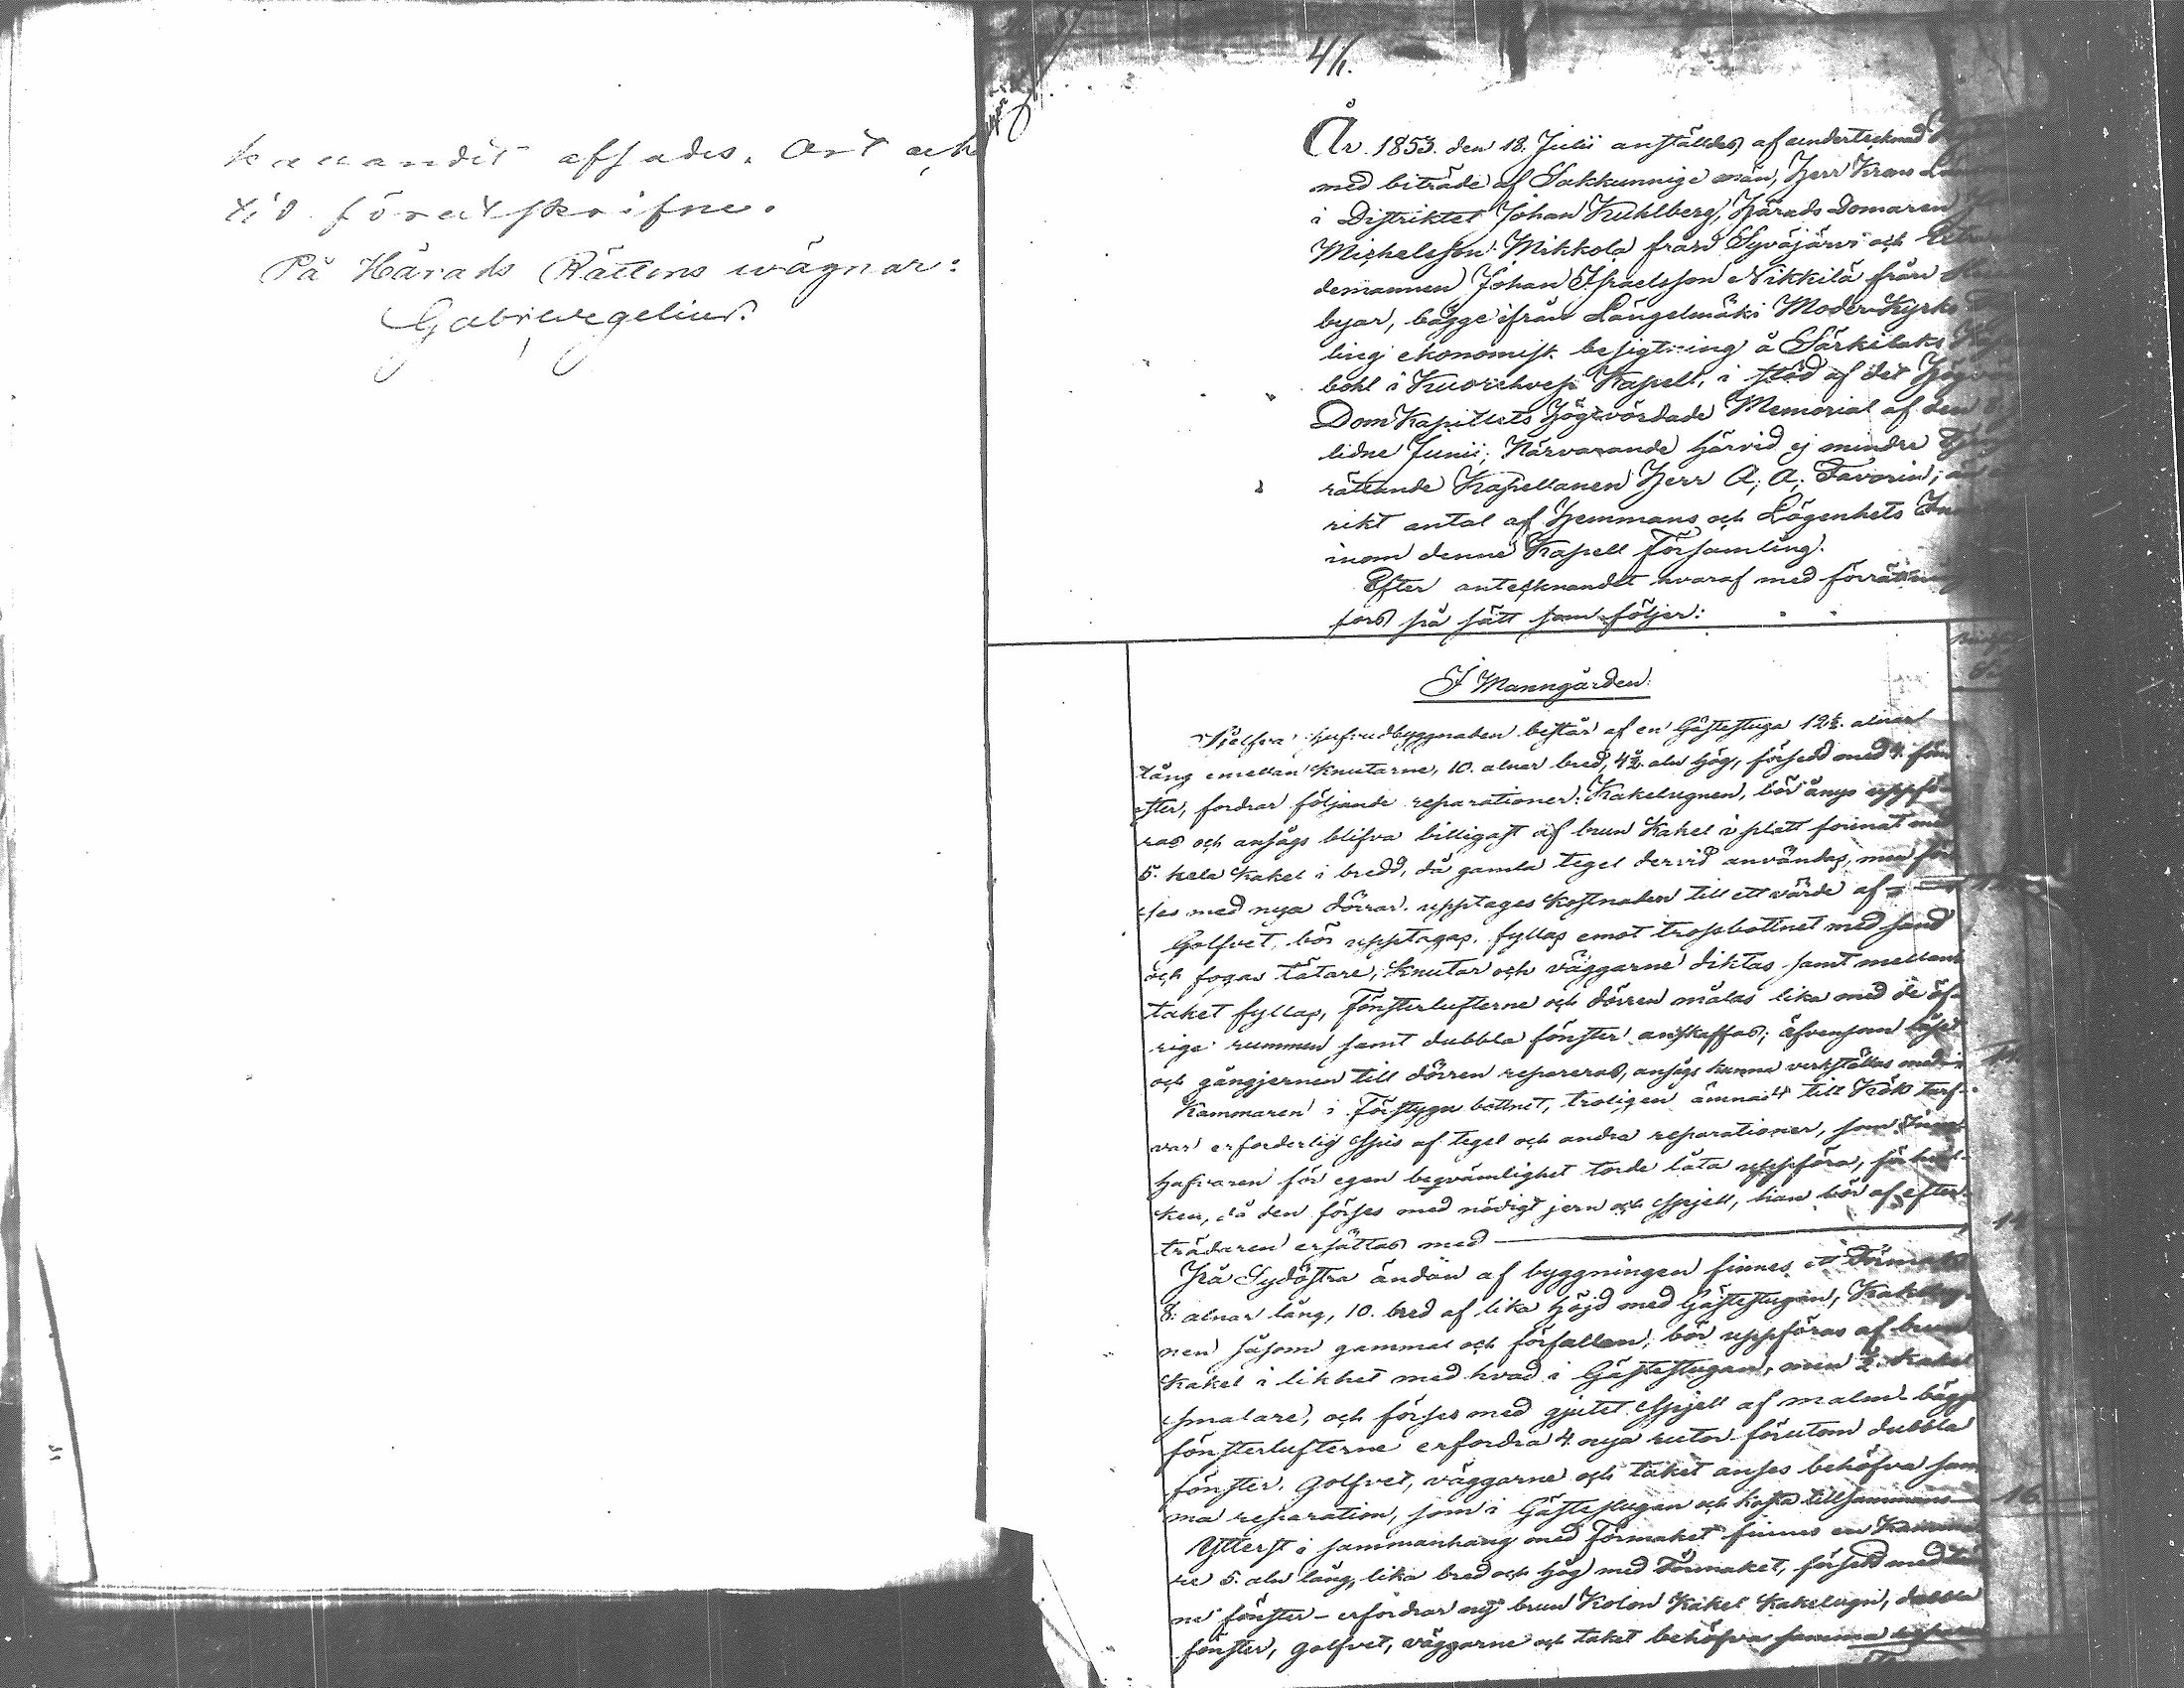 kunandit afsades. Ort och
tid förutskrifne.
På Härads Rättens wägnar:
Gab: Wegelius.
41.
År 1853. den 18. Julii anställdes af undertecknad
med biträde af Sakkunnige män, Herr Krono
i Distriktet Johan Kuhlberg, Härads Domaren
Michelsson Mikkola från Syväjärvi och
demannen Johan Israelsson Nikkilä från
byar, bägge ifrån Längelmäki Moder Kyrko
ling ekonomisk besigtning å Särkilaks
bohl i Kuorehvesi Kapell, i stöd af det
Dom Kapitlets Högtvördade Memorial af den 8.
lidne Junii; Närvarande härvid ej mindre
rättande Kapellanen Herr A. A. Favorin; än
rikt antal af Hemmans och Lägenhets
inom denne Kapell Församling.
Efter antecknandet hvaraf med förrättnin
fors på sätt som följer:
I Manngården:
Sielfva hufvudbyggnaden består af en Gästestuga 12½ alnar
lång emellan Knutarne, 10. alnar bred, 4½ aln hög, försedd med 4. fön
ster, fordrar följande reparationer: Kakelugnen, bör ånyo uppfö-
ras och ansågs blifva billigast af brun Kakel i platt format med
5. hela Kakel i bredd, då gamla tegel dervid användas, men för
ses med nya dörrar. upptages Kostnaden till ett värde af
Golfvet, bör upptagas, fyllas emot trossbottnet med sand
och fogas tätare, Knutar och väggarne diktas samt mellan
taket fyllas, Fönsterlufterne och dörren målas lika med de öf-
rige rummen samt dubbla fönster anskaffas; äfvensom låset
och gångjernen till dörren repareras, ansågs kunna verkställas med
Kammaren i Förstugu bottnet, troligen ämnadt till Kök tarf-
var erforderlig Spis af tegel och andra reparationer, som Inne
hafvaren för egen beqvämlighet torde låta uppföra, för hvil-
ken, då den förses med nödigt jern och Spjell, han bör af efter-
trädaren ersättas med
På Sydöstra ändan af byggningen finnes ett Förmak
8. alnar lång, 10. bred af lika höjd med Gästestugan, Kakelug-
nen såsom gammal och förfallen, bör uppföras af brun
Kakel i likhet med hvad i Gästestugan, men ½ Kakel
smalare, och förses med gjutet Spjell af malm. bägge
fönsterlufterne erfordra 4 nya rutor förutom dubbla
fönster. Golfvet, väggarne och taket anses behöfva sam
ma reparation, som i Gästestugan och kosta tillsammans
Ytterst i sammanhang med Förmaket finnes en Kamma
re 5. aln lång, lika bred och hög med Förmaket, försedd med
ne fönster - erfordrar ny brun Kolon Kakel Kakelugn, dubbla
fönster, golfvet, väggarne och taket behöfva samma